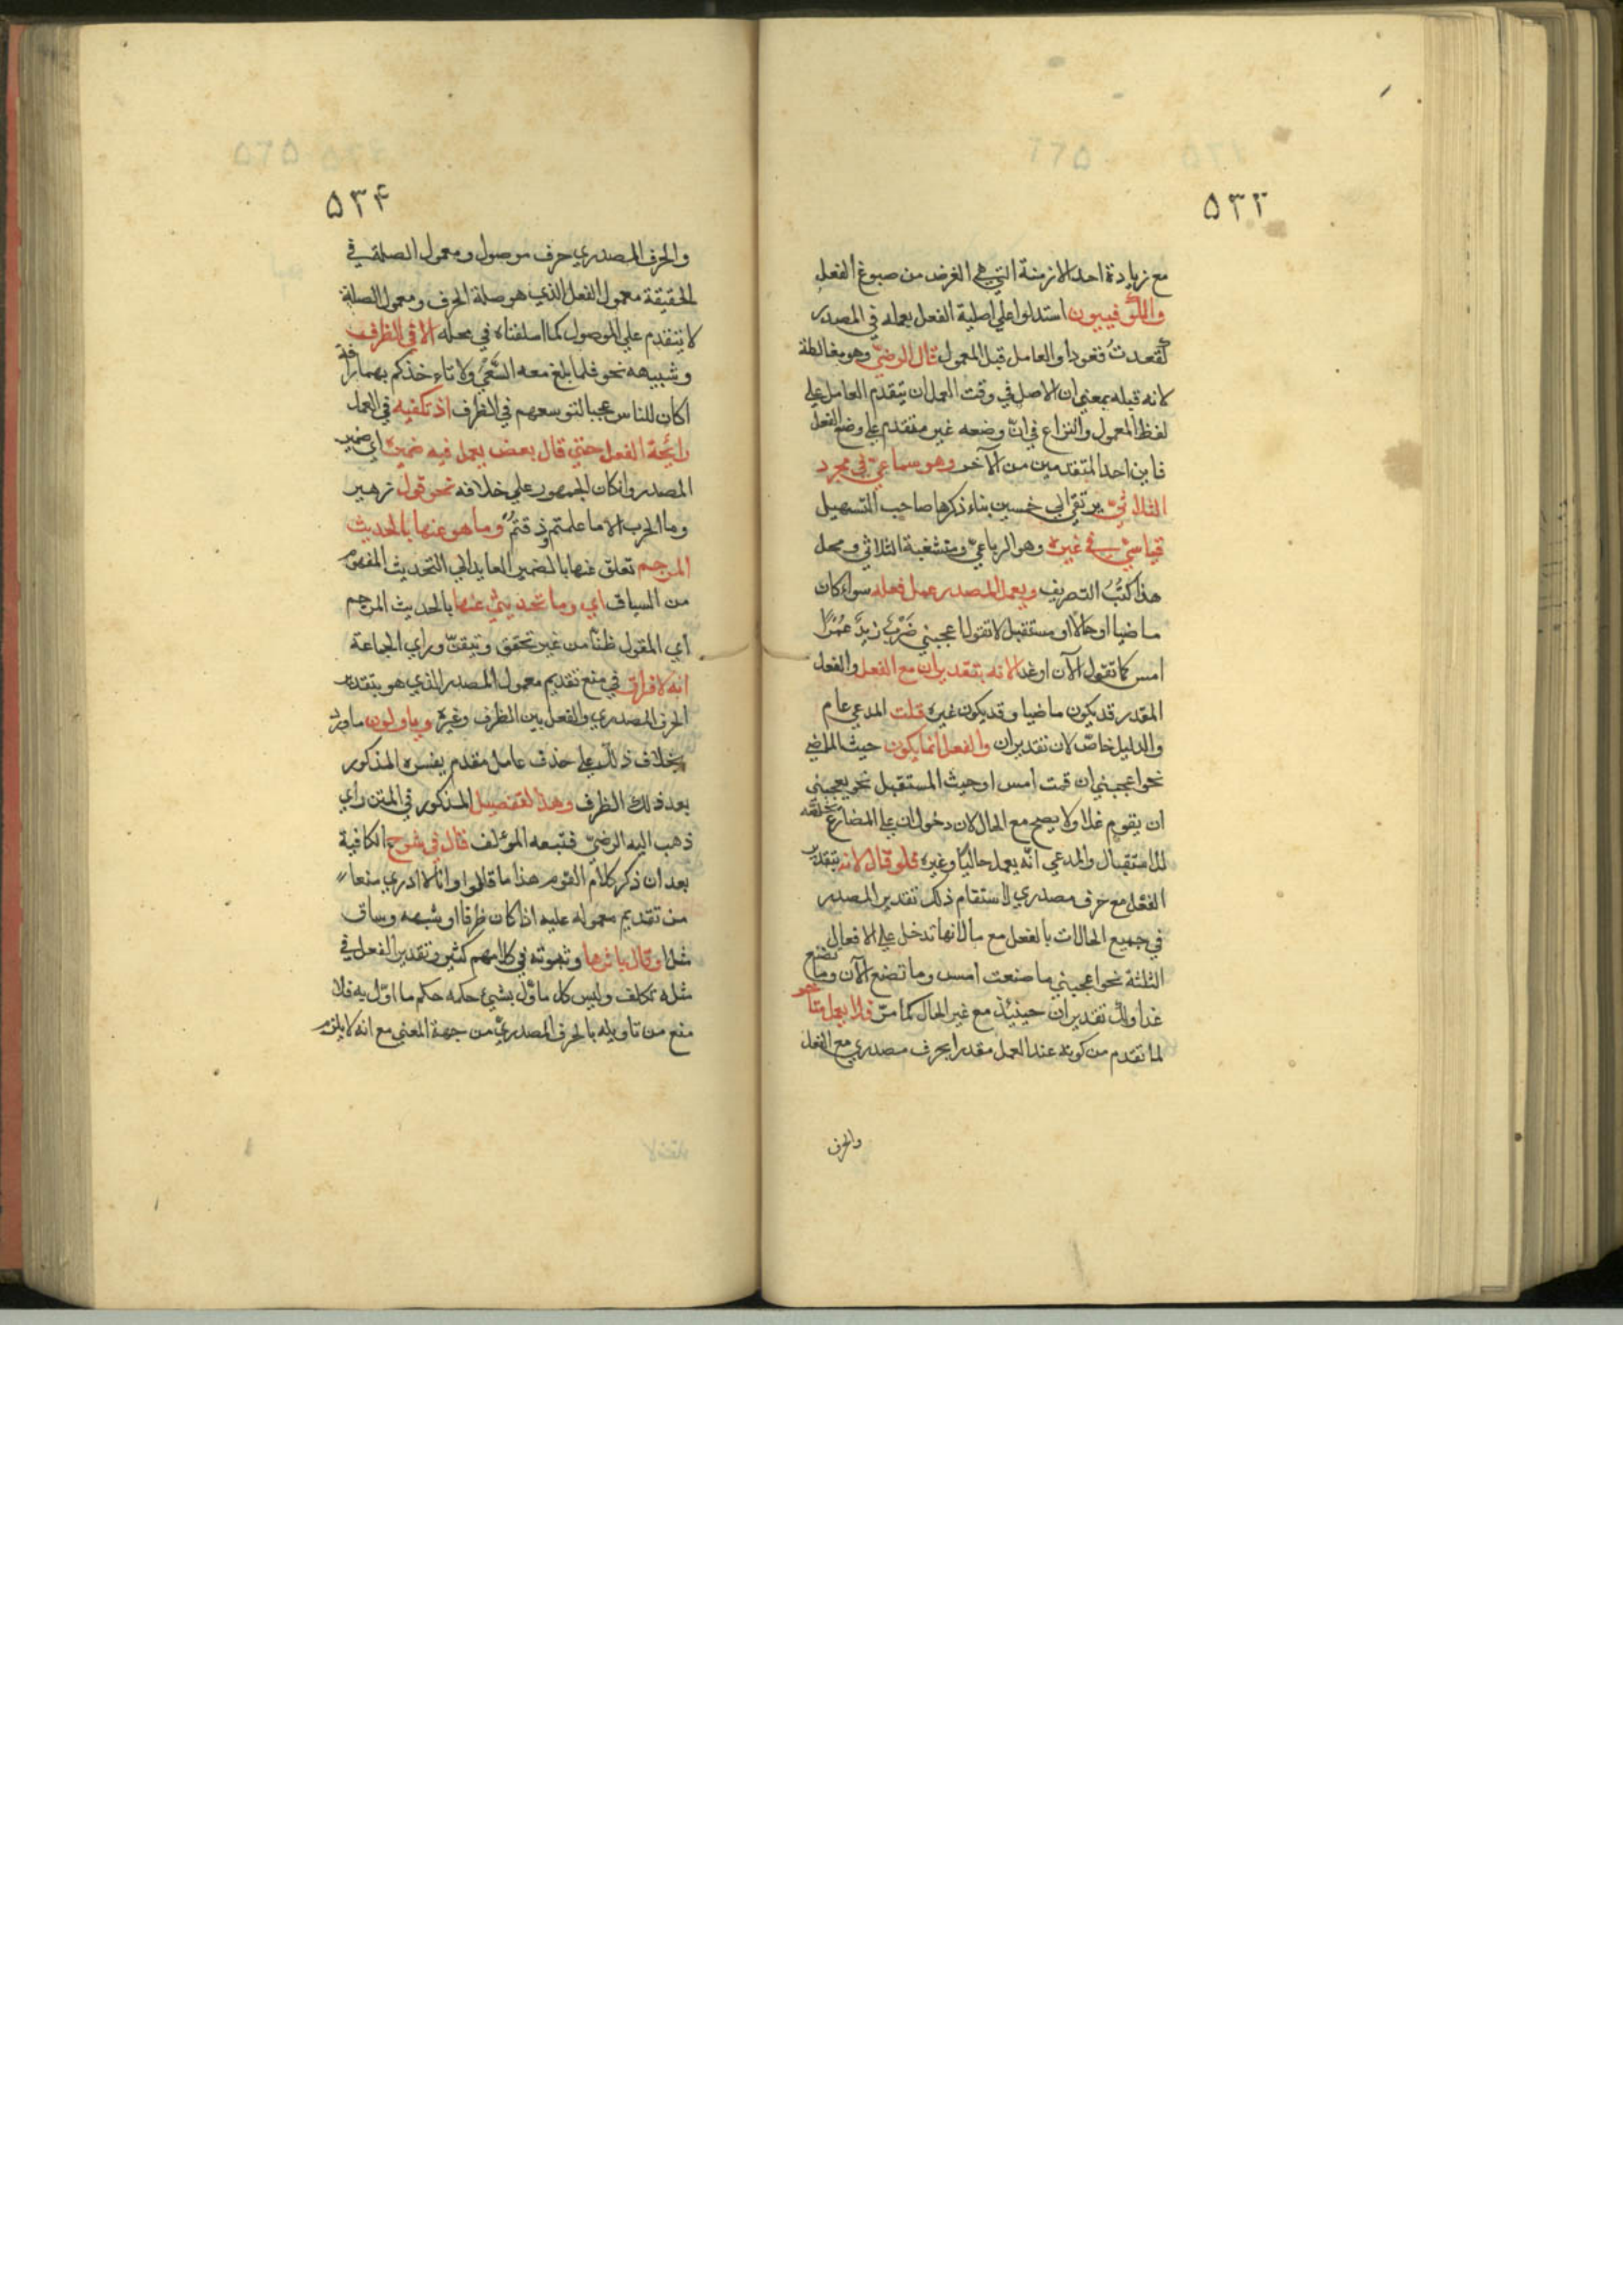 ٥٣٣
مع زيادة احد الازمنة التي هي الغرض من صوغ الفعل
والكوفيون استدلوا علي اصلية الفعل بعمله في المصدر
كقعدتُ قعودا والعامل قبل المعمول قال الرضيّ وهو مغالطة
لانه قبله بمعني ان الاصل في وقت العمل ان يتقدم العامل علي
لفظ المعمول والنزاع في انّ وضعه غير متقدم علي وضع الفعل
فاين احد المتقدمين من الآخر وهو سماعيّ في مجرد
الثلاثيّ يرتقي الي خمسين بناء ذكرها صاحب التسهيل
قياسيّ في غيره وهو الرباعيّ ومتشعبة الثلاثي ومحل
هذا كتُبُ التصريف ويعمل المصدر عمل فعله سواء كان
ماضيا او حالا او مستقبلا تقول اعجبني ضَرْبُ زيدٌ عمْرًا
امس كما تقول الآن او غدا لانه بتقدير ان مع الفعل والفعل
المقدر قد يكون ماضيا وقد يكون غيره قلت المدعي عام
والدليل خاصّ لان تقدير ان والفعل انما يكون حيث الماضي
نحو اعجبني ان قمت امس او حيث المستقبل نحو يعجبني
ان يقوم غدا ولا يصح مع الحال لان دخول ان علي المضارع تخلصه
للاستقبال والمدعي انّه يعمل حاليّا وغيره فلو قال لانه بتقدير
الفعل مع حرف مصدري لاستقام ذلك تقدير المصدر
في جميع الحالات بالفعل مع ما لانها تدخل علي الافعال
الثلثة نحو اعجبني ما صنعت امس وما تصنع الآن وما تصنع
غدا ولك تقدير ان حينئذ مع غير الحال كما مرّ فلا يعمل متأخر
لما تقدم من كونه عند العمل مقدرا بحرف مصدري مع الفعل
والحرف
٥٣٤
والحرف المصدري حرف موصول ومعمول الصلة في
الحقيقة معمول الفعل الذي هو صلة الحرف ومعمول الصلة
لا يتقدم علي الموصول كما اسلفناه في محله الا في الظرف
وشبيهه نحو فلما بلغ معه السَّعْيَ ولا تاءخذكم بهما رأفة
اكان للناس عجبا لتوسعهم في الظرف اذ تكفيه في العمل
رائحة الفعل حتي قال بعض يعمل فيه ضميره اي ضمير
المصدر وان كان الجمهور علي خلافه نحو قول زهير
وما الحرب الا ما علمتم وذقتمُ وما هو عنها بالحديث
المرجم تعلق عنها بالضمير العايد الي التحديث المفهوم
من السياق اي وما تحديثي عنها بالحديث المرجم
اي المقول ظنّا من غير تحقق وتيقنّ وراي الجماعة
انه لا فرق في منع تقديم معمول المصدر الذي هو بتقدير
الحرف المصدري والفعل بين الظرف وغيره وياولون ما ورد
بخلاف ذلك علي حذف عامل مقدم يفسره المذكور
بعد ذلك الظرف وهذا التفصيل المذكور في المتن راي
ذهب اليه الرضيّ فتبعه المؤلف قال في شرح الكافية
بعد ان ذكر كلام القوم هذا ما قالوا وانا لا ادري منعا
من تقديم معموله عليه اذا كان ظرفا او شبهه وساق
مثلا وقال باثرها وثبوته في كلامهم كثير وتقدير الفعل في
مثله تكلف وليس كل ماوّل بشيئ حكمه حكم ما اوّل به فلا
منع من تاويله بالحرف المصدريّ من جهة المعني مع انه لا يلزم